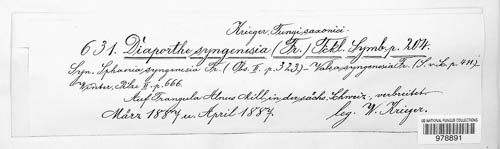 Krieger, Fungi saxonici.
631. Diaporthe syngenesia (Fr.) Fckl. Symb. p. 204.
Syn. Sphaeria syngenesia Fr. (Obs. II. p. 323) – Valsa syngenesia Fr. (S. v. Sc. p. 411).
Winter, Pilze II. p. 666.
Auf Frangula Alnus Mill. in der sächs. Schweiz, verbreitet.
März 1887 u. April 1887. leg. W. Krieger.
US NATIONAL FUNGUS COLLECTIONS
978891